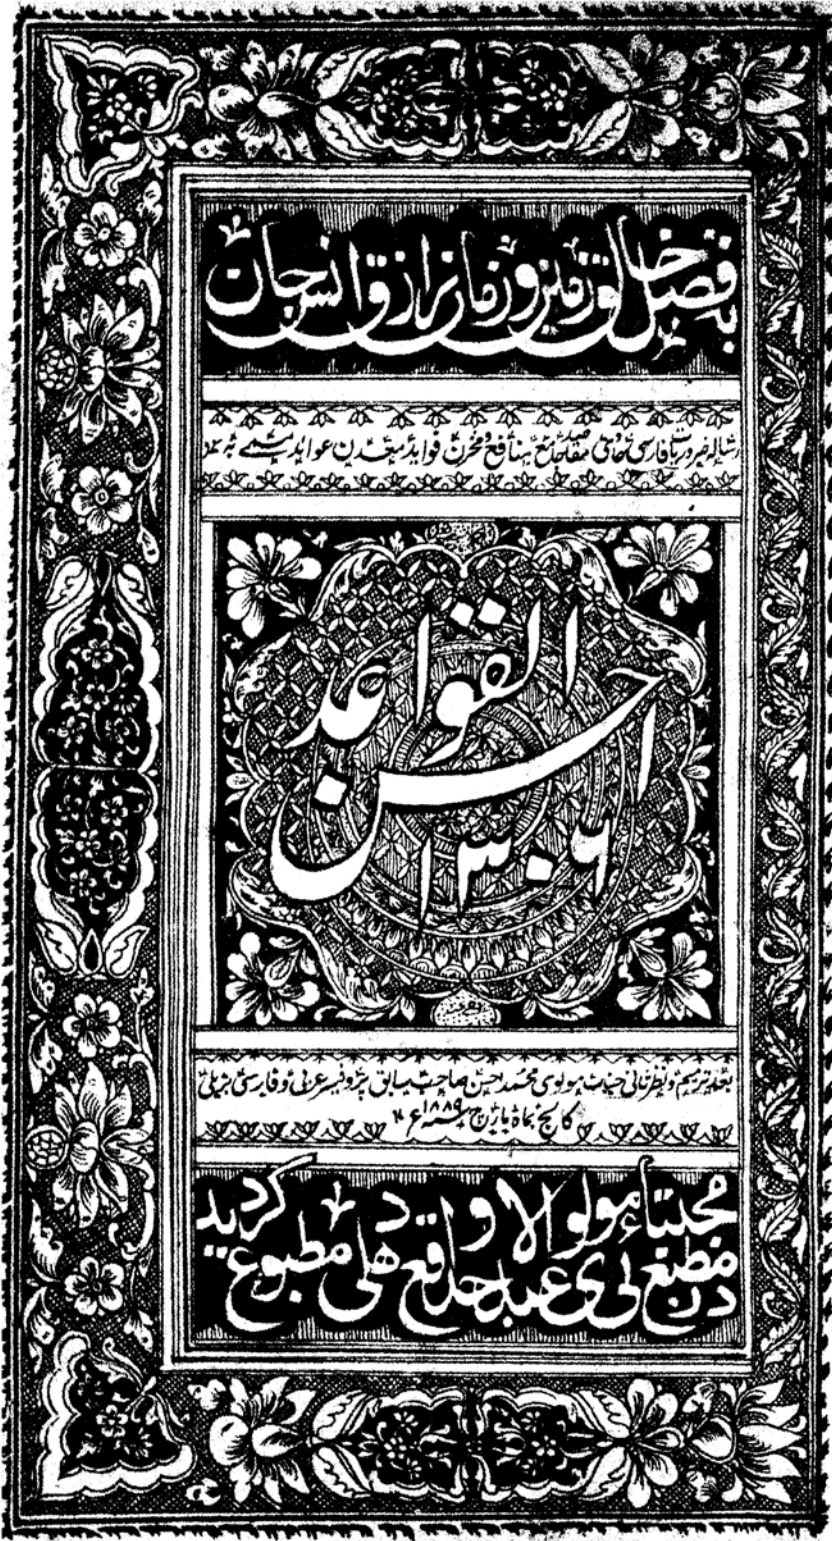 بفضل خالق زمین و زمان رازق انس و جان
رساله ضروریات فارسی حاوی مقاصد جامع منافع و مخزن فواید معدن عواید مسمے به
احسن القواعد
۱۳۰۶
بعد ترمیم و نظر ثانی جناب مولوی محمد احسن صاحب سابق پروفیسر عربی و فارسی بریلی
کالج بماه مارچ سنه ۱۸۸۹ ع
در مطبع مجتبائی مولوی عبدالاحد واقع دهلی مطبوع گردید